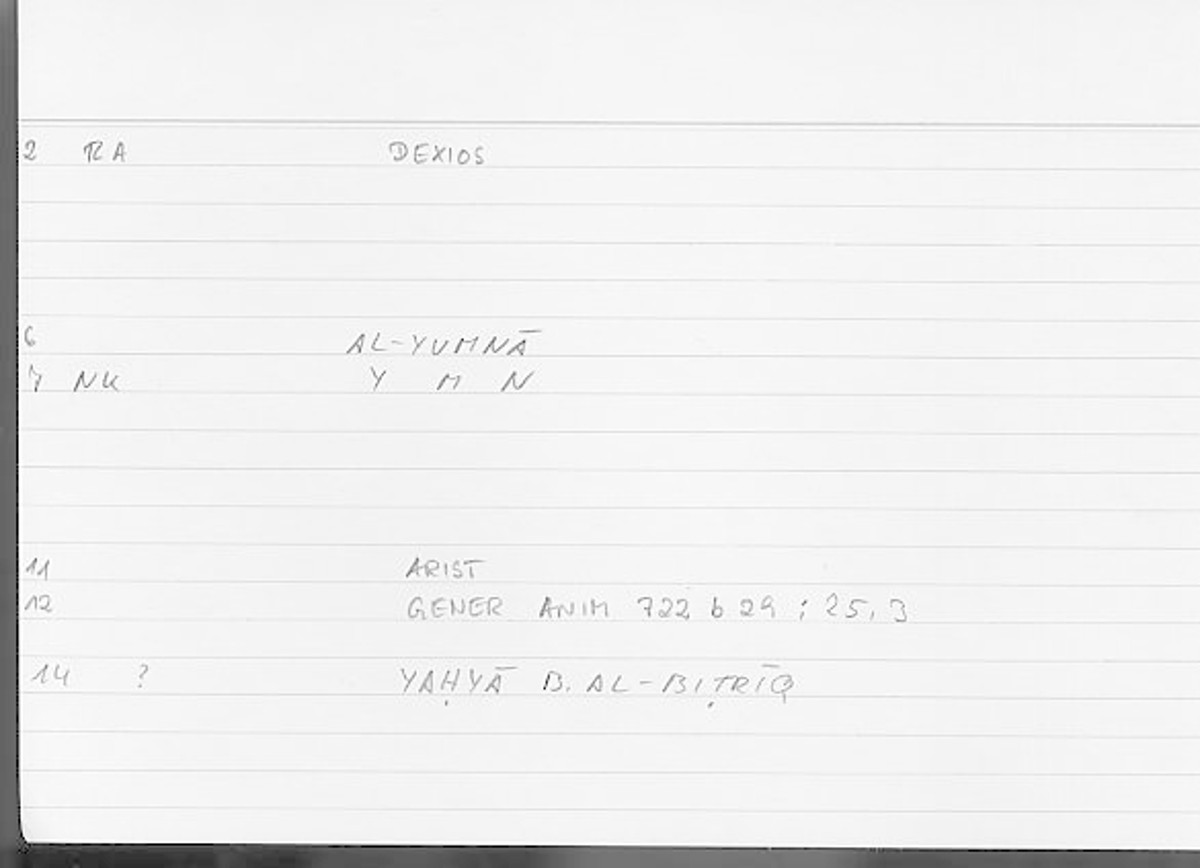 2 RA DEXIOS
6 AL-YUMNĀ
7 NK Y M N
11 ARIST
12 GENER ANIM 722 b 29 ; 25, 3
14 ? YAḤYĀ B. AL-BIṬRĪQ